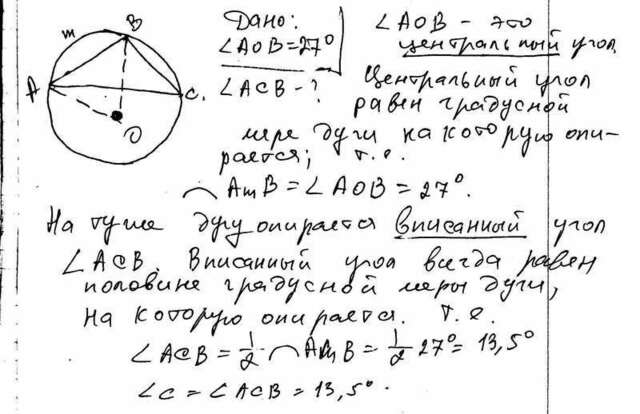 m B A C. O
Дано: ∠AOB - это
∠AOB = 27° центральный угол.
∠ACB - ? Центральный угол
равен градусной
мере дуги на которую опи-
рается; т.е.
◠ AmB = ∠AOB = 27°.
На ту же дугу опирается вписанный угол
∠ACB. Вписанный угол всегда равен
половине градусной меры дуги,
на которую опирается. Т.е.
∠ACB = 1/2 ◠ AmB = 1/2 27° = 13,5°
∠C = ∠ACB = 13,5°.